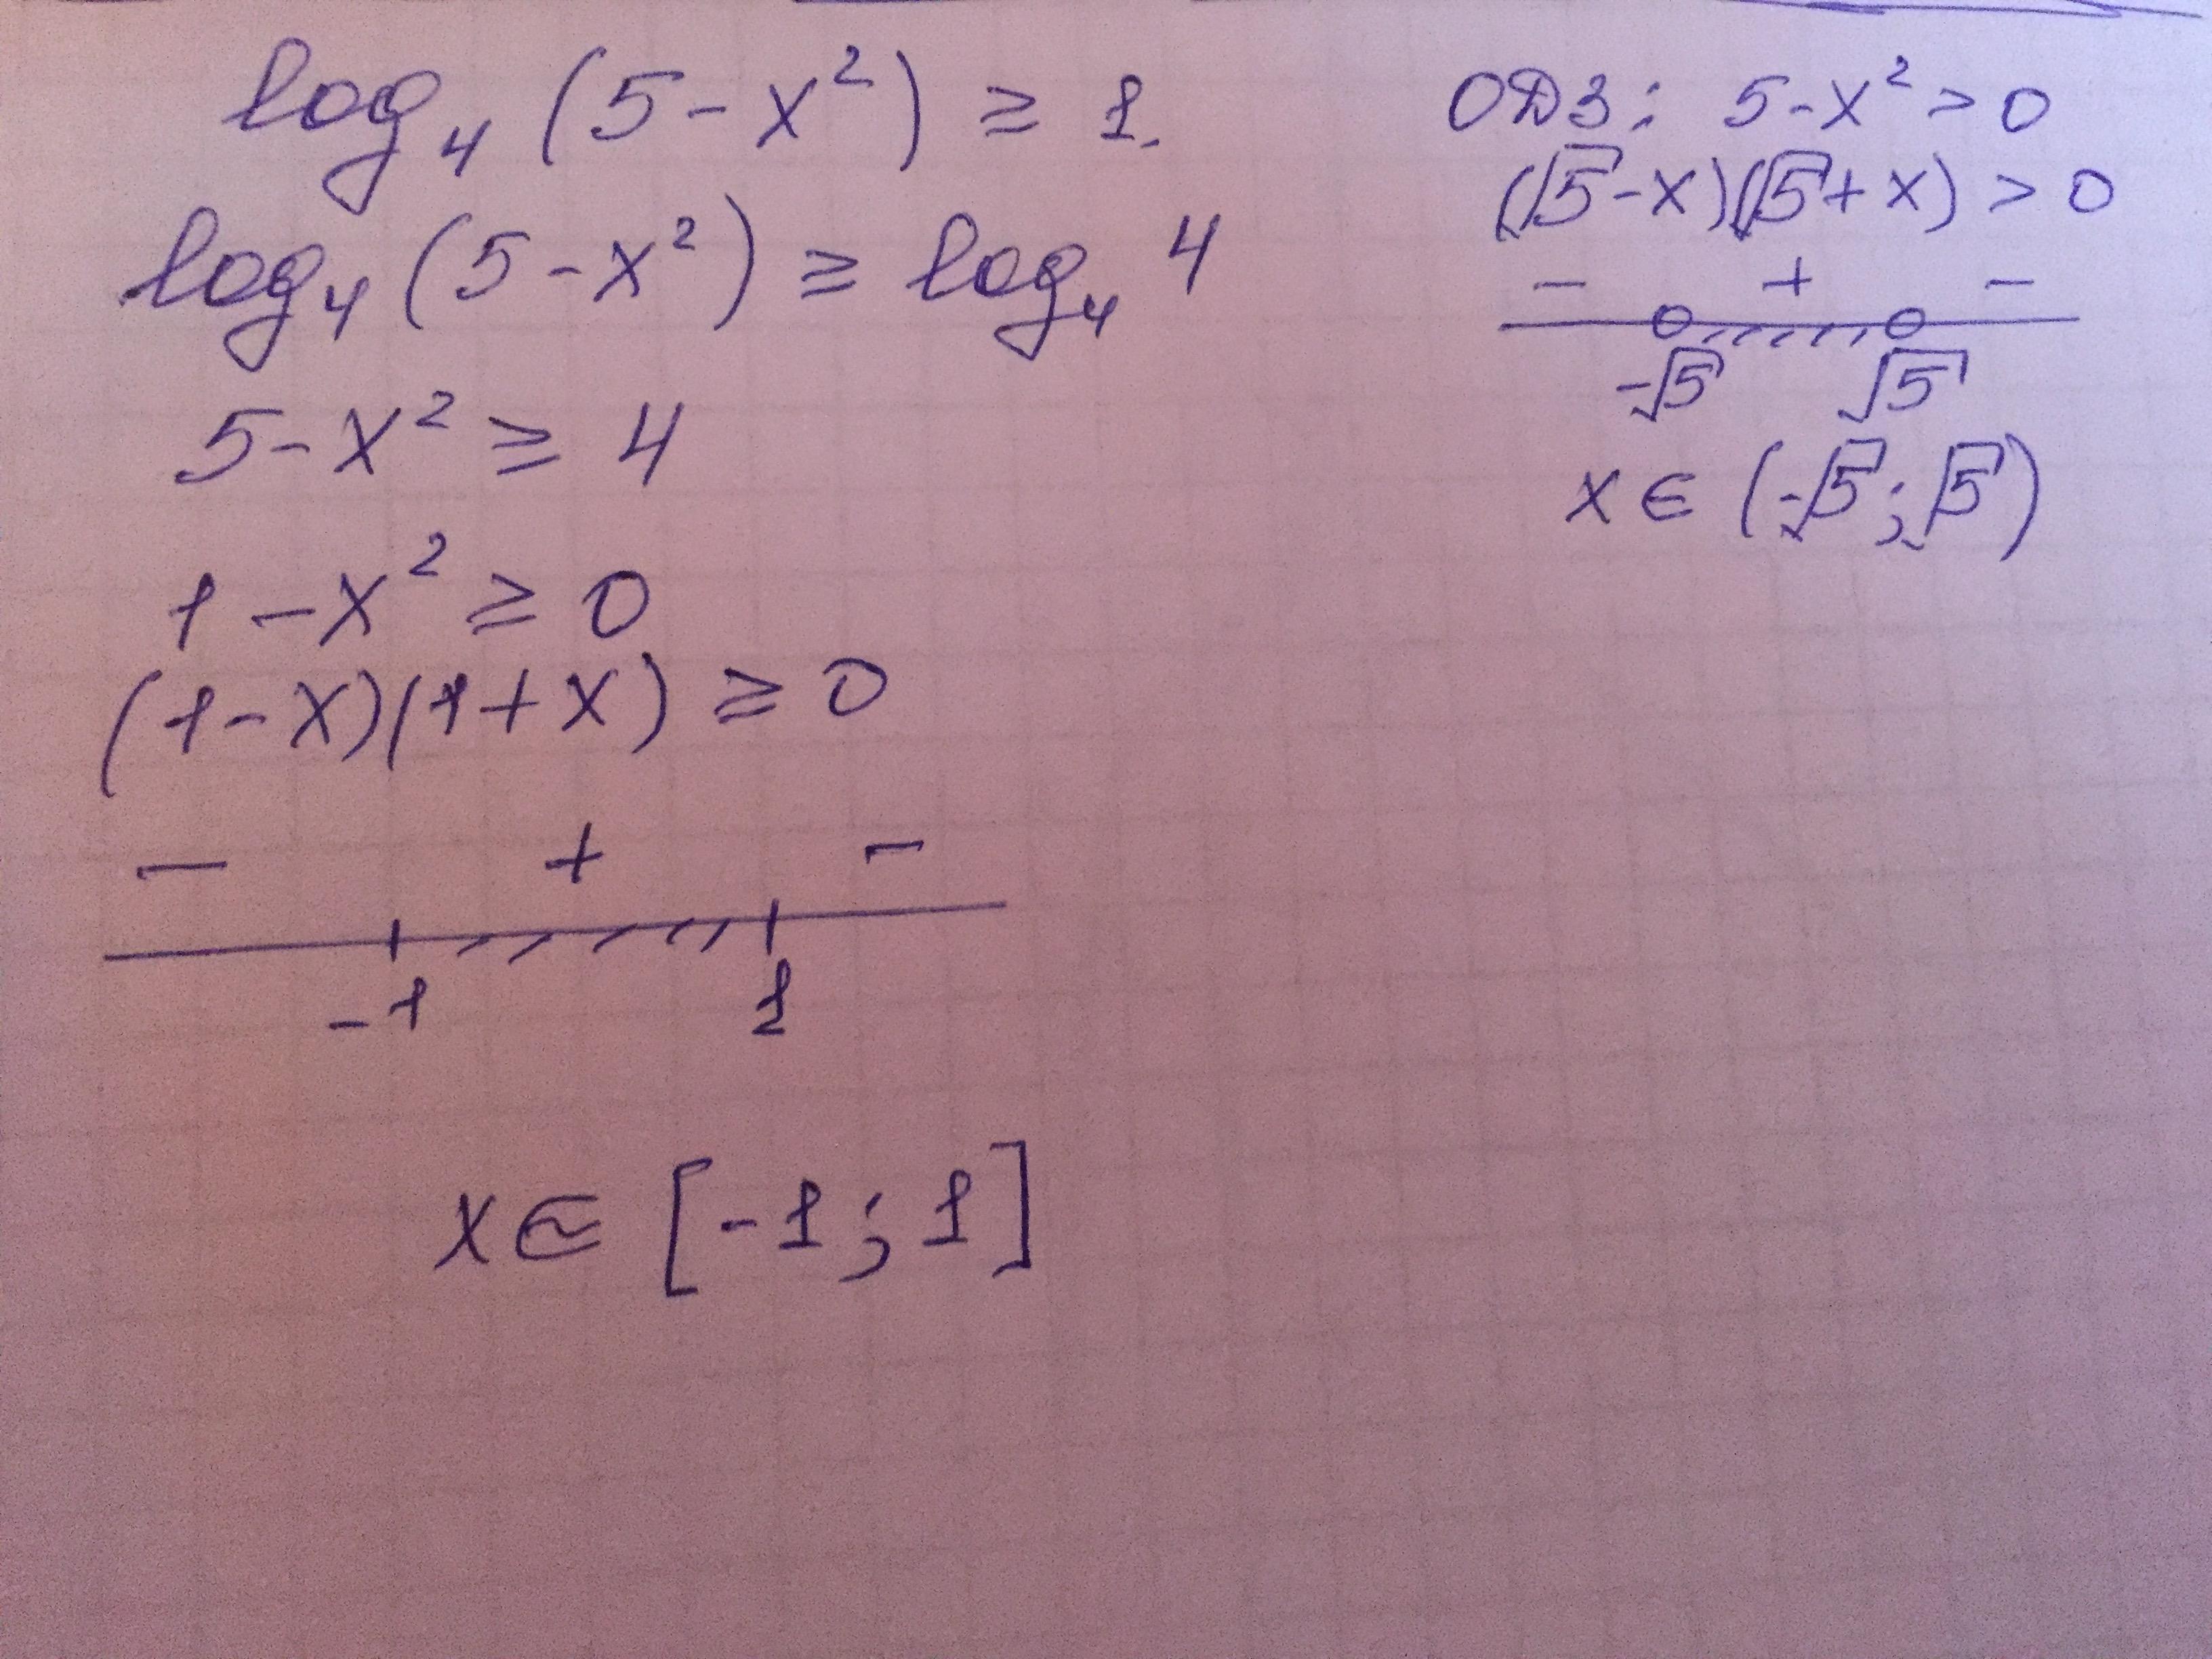 log₄ (5 - x²) ≥ 1.
log₄ (5 - x²) ≥ log₄ 4
5 - x² ≥ 4
1 - x² ≥ 0
(1 - x)(1 + x) ≥ 0
− + −
-1 1
x ∈ [-1 ; 1]
ОДЗ: 5 - x² > 0
(√5 - x)(√5 + x) > 0
− + −
-√5 √5
x ∈ (-√5 ; √5)